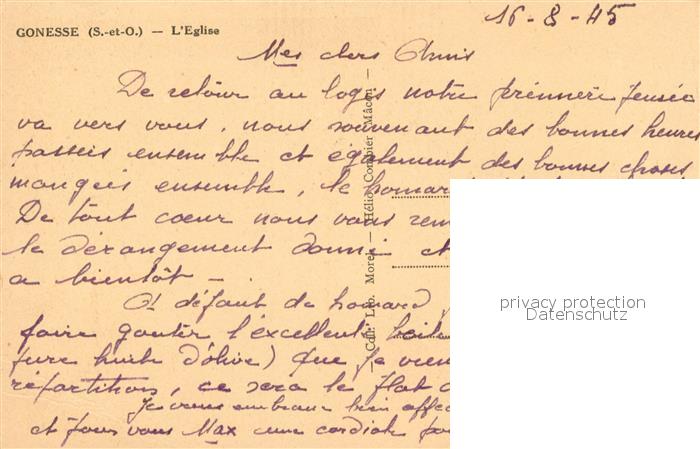 GONESSE (S.-et-O.) — L'Eglise
16-8-45
Mes chers Amis
De retour au logis notre prémière pensée
va vers vous, nous souvenant des bonnes heures
passeis ensemble et également des bonnes choses
mangeés ensemble, le homar
De tout cœur nous vous rem
le dérangement donné et
a bientôt —
A défaut de homard,
faire gouter l'excellente
pure huile d'olive) que je vien
répartition, ce sera le plat d
Je vous embrasse bien affec
et pour vous Max une cordiale po
— Coll. Lib. Morel — Hélio Combier Mâcon —
privacy protection
Datenschutz